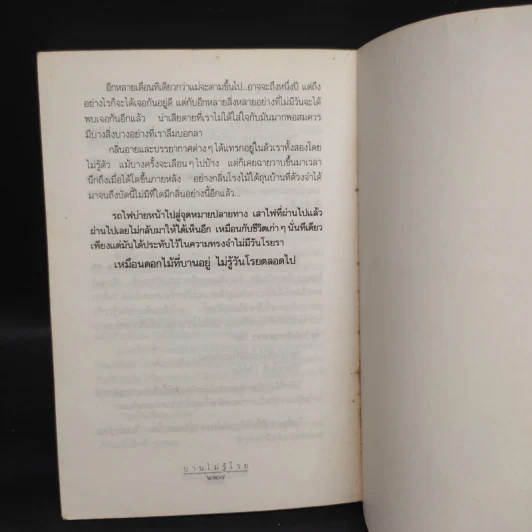 อีกหลายเดือนทีเดียวกว่าแม่จะตามขึ้นไป...อาจจะถึงหนึ่งปี แต่ถึง
อย่างไรก็จะได้เจอกันอยู่ดี แต่กับอีกหลายสิ่งหลายอย่างที่ไม่มีวันจะได้
พบเจอกันอีกแล้ว น่าเสียดายที่เราไม่ได้ใส่ใจกับมันมากพอสมควร
มีบางสิ่งบางอย่างที่เราลืมบอกลา
กลิ่นอายและบรรยากาศต่างๆ ได้แทรกอยู่ในตัวเราทั้งสองโดย
ไม่รู้ตัว แม้บางครั้งจะเลือนๆ ไปบ้าง แต่ก็เคยฉายวาบขึ้นมาเวลา
นึกถึงเมื่อได้โตขึ้นภายหลัง อย่างกลิ่นโรงไม้ใต้ถุนบ้านที่ตัวงจำได้
มาจนถึงบัดนี้ไม่มีที่ใดมีกลิ่นอย่างนี้อีกแล้ว...
รถไฟบ่ายหน้าไปสู่จุดหมายปลายทาง เสาไฟที่ผ่านไปแล้ว
ผ่านไปเลยไม่กลับมาให้ได้เห็นอีก เหมือนกับชีวิตเก่าๆ นั่นทีเดียว
เพียงแต่มันได้ประทับไว้ในความทรงจำไม่มีวันโรยรา
เหมือนดอกไม้ที่บานอยู่ ไม่รู้วันโรยตลอดไป
บานไม่รู้โรย